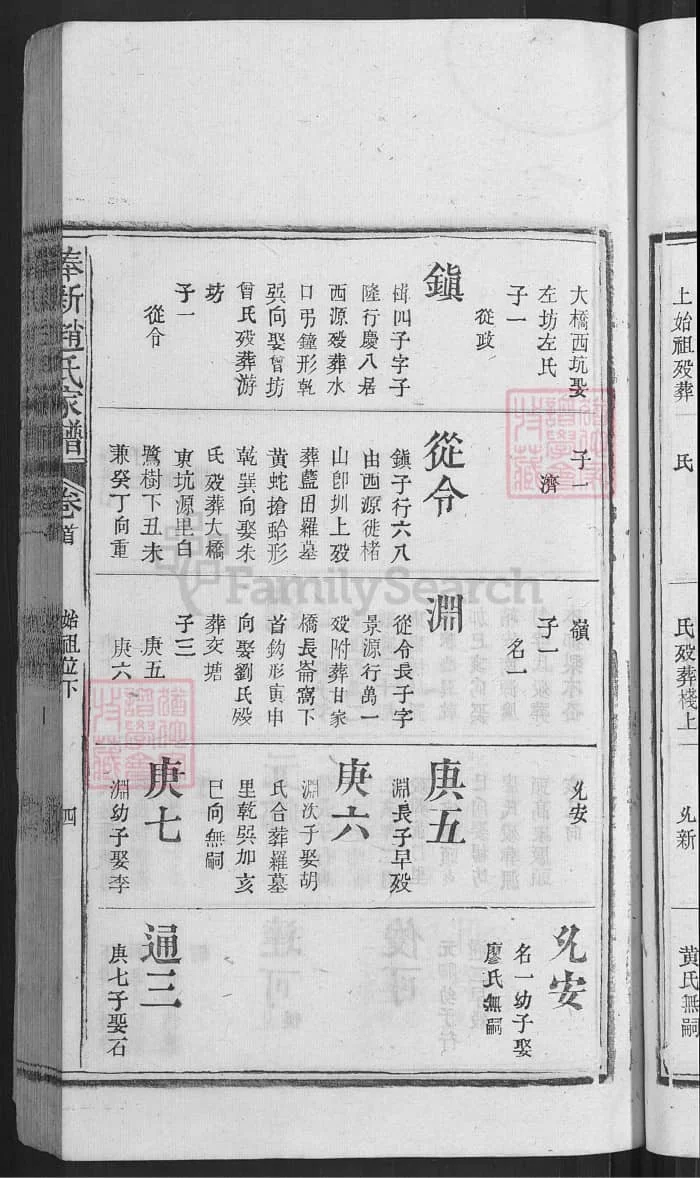 大橋西坑娶
左坊左氏
子一
從政
鎮
楫四子字子
隆行慶八居
西源殁葬水
口弔鐘形乾
巽向娶曾坊
曾氏殁葬游
坊
子一
從令
子一
濟
從令
鎮子行六八
由西源徙楮
山卽圳上殁
葬藍田羅墓
黄蛇搶蛤形
乾巽向娶朱
氏殁葬大橋
東坑源里白
鷺樹下丑未
兼癸丁向重
嶺
子一
名一
淵
從令長子字
景源行萬一
殁附葬甘家
橋長崙窩下
首鈎形寅申
向娶劉氏殁
葬炭塘
子三
庚五
庚六
允安
庚五
淵長子早殁
庚六
淵次子娶胡
氏合葬羅墓
里乾巽加亥
巳向無嗣
庚七
淵幼子娶李
允安
名一幼子娶
廖氏無嗣
通三
庚七子娶石
奉新趙氏家譜
卷首
始祖位下
四
上始祖殁葬
氏
氏殁葬棧上
允新
黄氏無嗣
FamilySearch